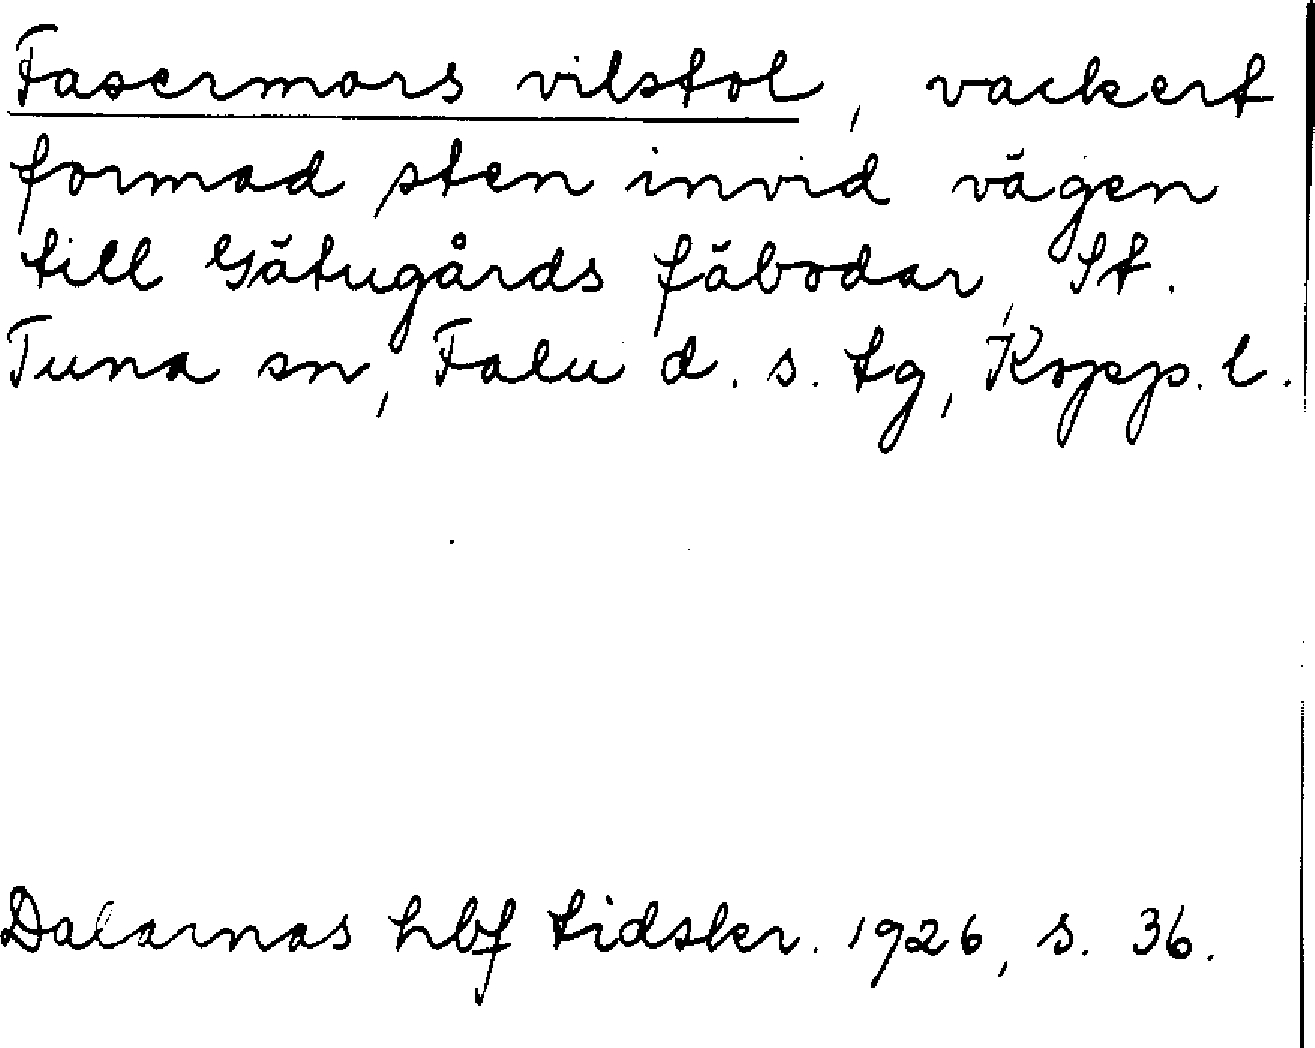 Fasermors vilstol, vackert
formad sten invid vägen
till Gätugårds fäbodar, St.
Tuna sn, Falu d. s. tg, Kopp. l.
Dalarnas hbf tidskr. 1926, s. 36.